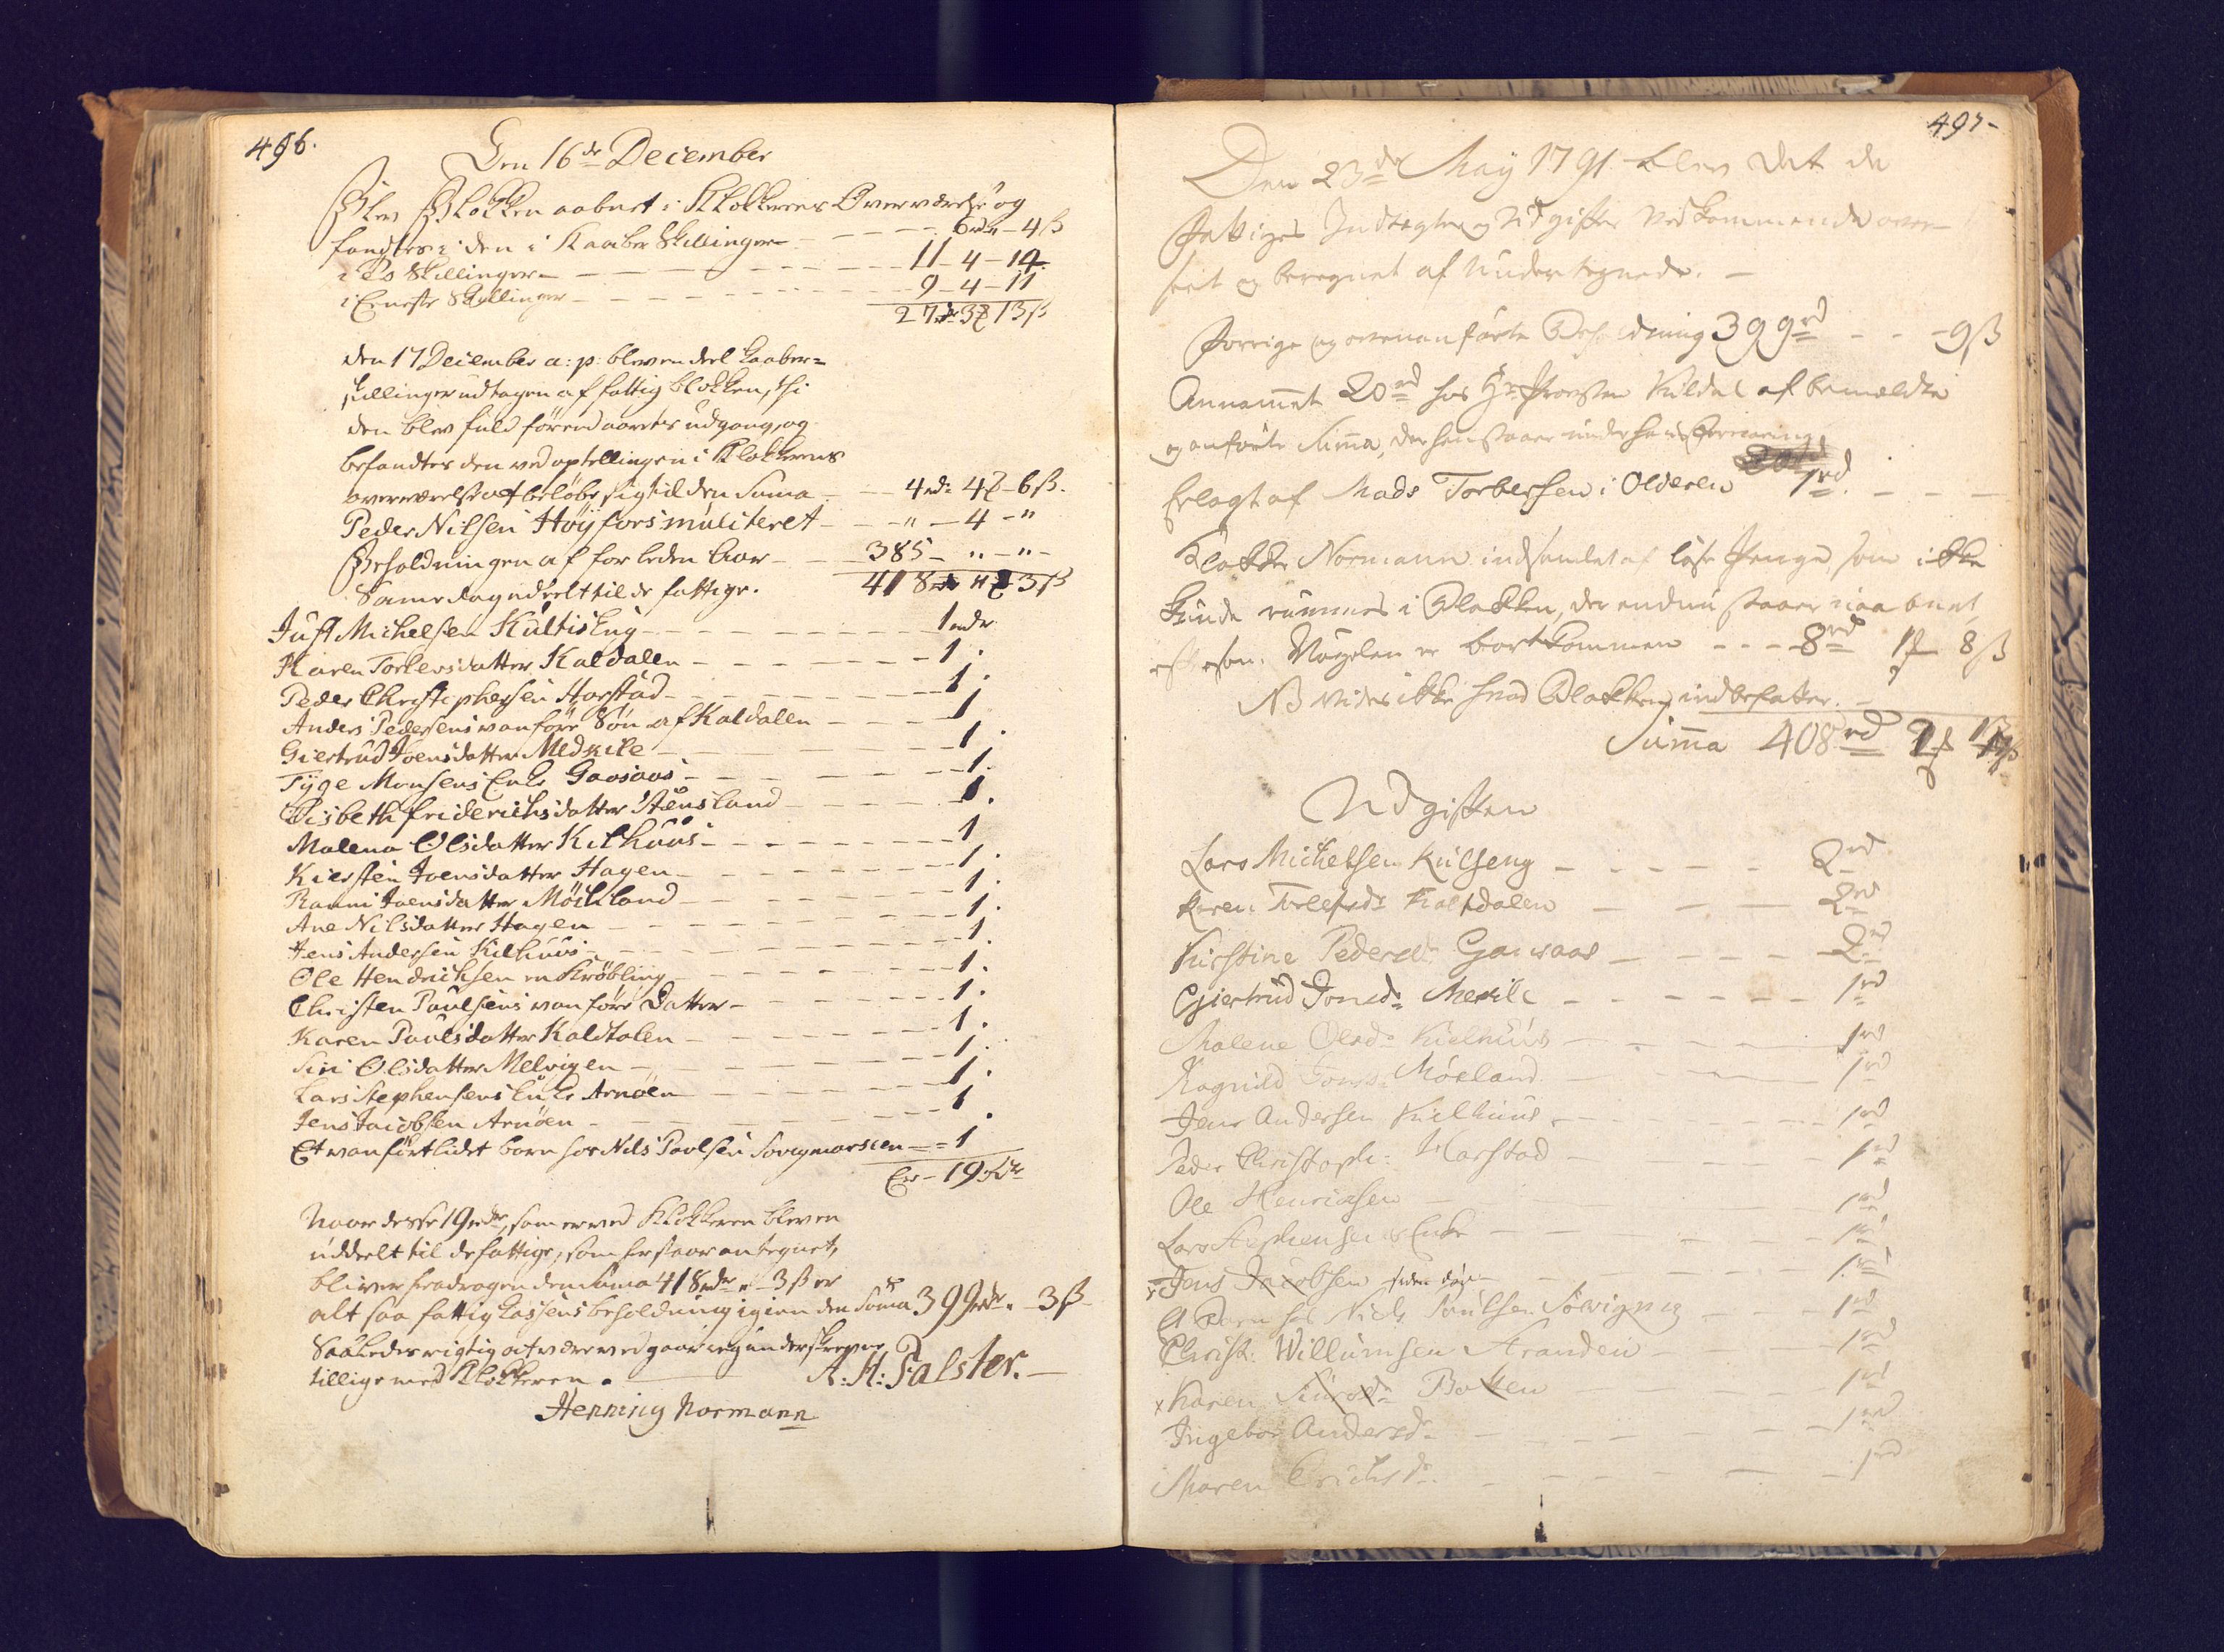 496.
Den 16de December
Blev Blokken aabnet i Klokkerens Overværelse og
fandtes i den i Kaaber Skillinger — — — — 6rdr „ – 4ß
i To Skillinger — — — — 11 – 4 – 14.
i Eneste Skillinger — — — — 9 – 4 – 11
27rdr 3 13ß
den 17 December a: p: blev en deel kaaber=
skillinger udtagen af fattig blokken, thi
den blev fuld förend aarets udgang, og
befandtes den ved optellingen i Klokkerens
overværelse at beløbe sig til den Suma — 4rd: 4 – 6ß.
Peder Nilsen Höyfors muliteret — — „ – 4 – „
Beholdningen af forleden Aar — — 385 – „ – „ –
418rdr „ 3ß
Same dag uddeelt til de fattige.
Just Michelsen Kultiseng — — — — 1rdr
Karen Torlevsdatter Kaldalen — — — — 1.
Peder Christophersen Harstad — — — — 1.
Anders Pedersens vanföre Sön af Kaldalen — — — 1
Giertrud Joensdatter Medkile — — — — 1.
Tyge Monsens Enke Gaasaas — — — — 1.
Lisbeth friderichsdatter Stensland — — — — 1.
Malena Olsdatter Kilhuus — — — — 1
Kiersten Joensdatter Hagen — — — — 1.
Ranni Joensdatter Möckland — — — — 1.
Ane Nilsdatter Hagen — — — — 1.
Jens Andersen Kilhuus — — — — 1.
Ole Hendrichsen en Kröbling — — — — 1.
Christen Paulsens vanföre Datter — — — — 1.
Karen Paulsdatter Kaldalen — — — — 1.
Siri Olsdatter Melvigen — — — — 1.
Lars Stephensens Enke Arnöen — — — — 1.
Jens Jacobsen Arnöen — — — — 1.
Et vanfört lidet barn hos Nils Paulsen — = 1
Er – 19rdr
Naar desse 19rdr, som er ved Klokkeren bleven
uddeelt til de fattige, som her staar antegnet,
bliver fradragen den Suma 418rdr „ 3ß er
alt saa fattig Cassens beholdning igien den Suma 399rdr „ 3ß
Saaledes rigtig at være vedgaar ieg underskreven
tillige med Klokkeren. A: H: Falster.
Henning Normann
497–
Den 23de May 1791 blev det de
Fattiges Indtægter og Udgifter vedkommende over-
seet og beregnet af Undertegnede. —
Forrige og ovenanførte Beholdning 399rd — — 9ß
Annammet 20rd hos Hr Provsten Kildal af bemældte
og anførte Summa, der henstaaer under hans Forvaring.
Erlagt af Mads Torbersen i Olderen 1rd. — — —
Klokker Normann indsamlet af løse Penge, som ikke
kunde rummes i Blokken, der endnu staaer uaabnet,
eftersom Nøgelen er bortkommen — — — 8rd 1 8ß
NB vides ikke hvad Blokken indbefatter.
Summa 408rd
Udgiften
Lars Michelsen Kulseng — — — — 2rd
Karen Torlefsd: Kaltdalen — — — 2rd
Kirstine Pedersd: Gausaas — — — — 2rd
Giertrud Jonsd: Mekile — — — — 1rd
Malene Olsd: Kielhuus — — — — 1rd
Ragnild Jonsd: Möcland — — — — 1rd
Jens Andersen Kielhuus — — — — 1rd
Peder Christoph: Harstad — — — — 1rd
Ole Henrichsen — — — — 1rd
Lars Stephensens Enke — — — — 1rd
x Jens Jacobsen — — — 1rd
Et Barn hos Niels Poulsen — — — 1rd
Christ: Willumsen Aranden — — — 1rd
x Karen Siursd: Botten — — — 1rd
Ingebor Andersd: — — — — 1rd
Maren Erichsd: — — — — 1rd